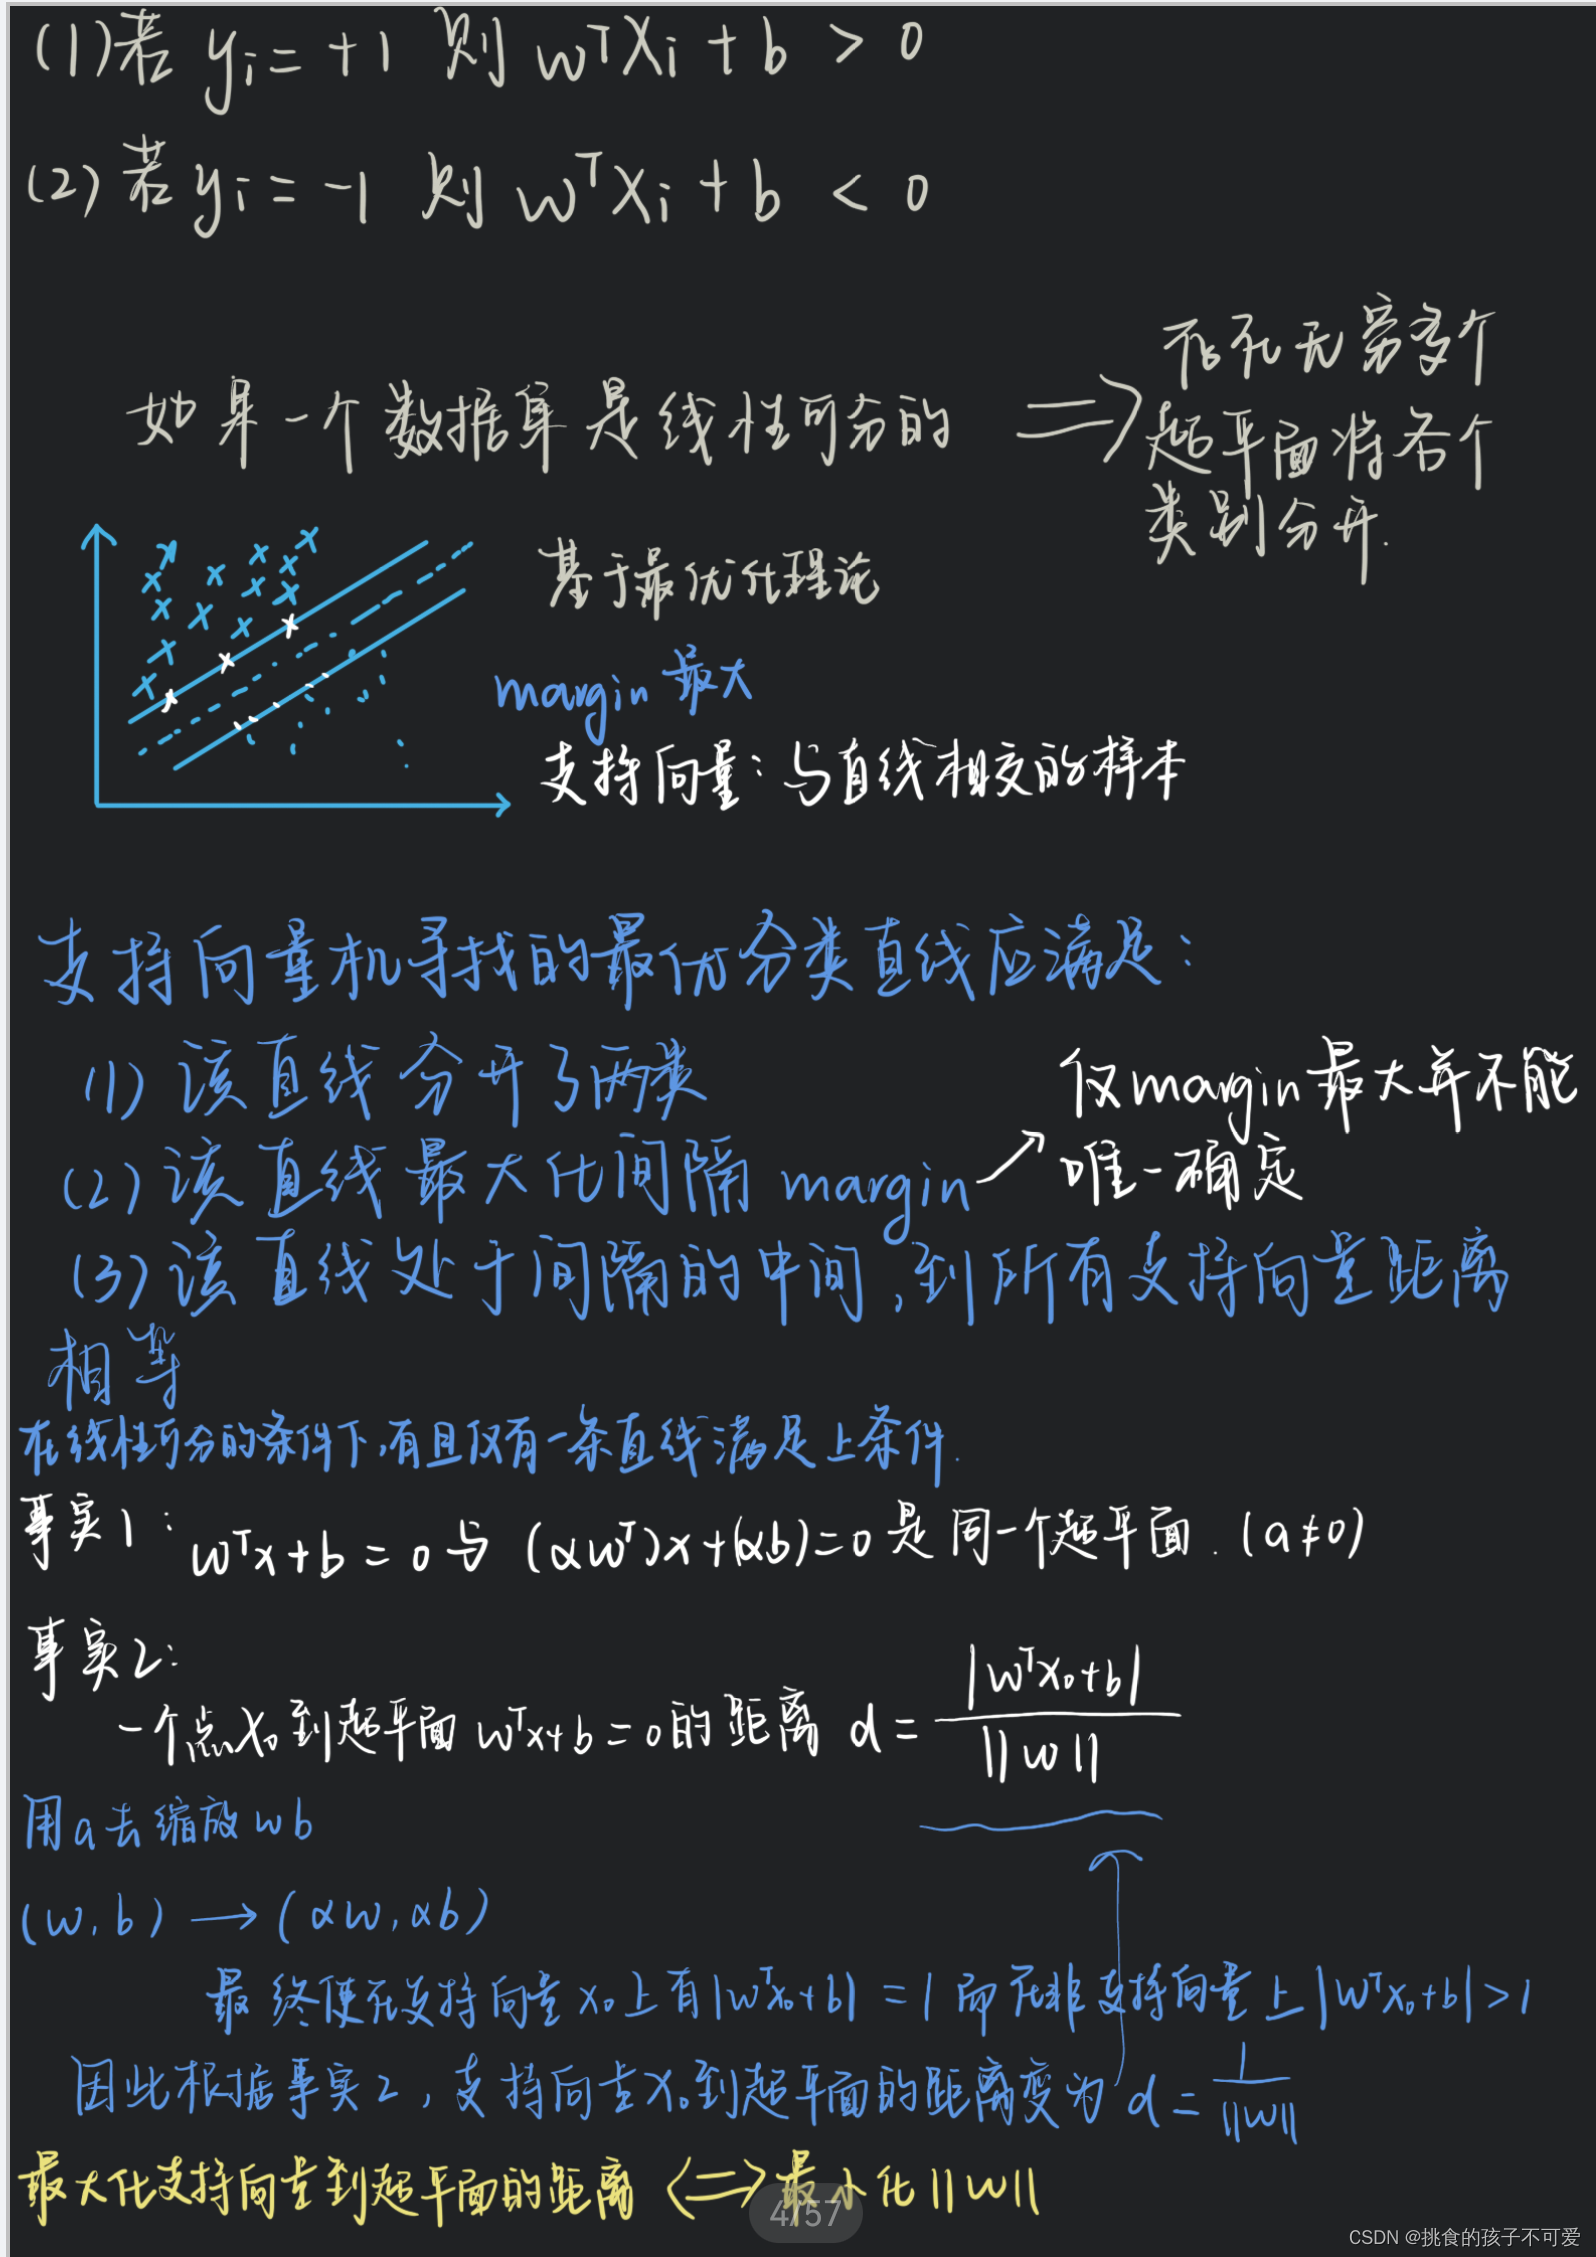 (1)若 yi = +1 则 wᵀXi + b > 0
(2)若 yi = -1 则 wᵀXi + b < 0
如果一个数据集是线性可分的 ⟹ 存在无穷多个
超平面将各个
类别分开.
基于最优化理论
margin 最大
支持向量：与直线相交的样本
支持向量机寻找的最优分类直线应满足：
(1) 该直线分开了两类
(2) 该直线最大化间隔 margin ↗ 仅margin最大并不能
唯一确定
(3) 该直线处于间隔的中间,到所有支持向量距离
相等
在线性可分的条件下,有且仅有一条直线满足上条件.
事实1： wᵀx+b=0与 (αwᵀ)x+(αb)=0是同一个超平面. (a≠0)
事实2：
一个点x₀到超平面 wᵀx+b=0的距离 d = |wᵀx₀+b| / ||w||
用a去缩放wb
(w,b) → (αw,αb)
最终使在支持向量x₀上有|wᵀx₀+b|=1 而在非支持向量上|wᵀx₀+b|>1
因此根据事实2,支持向量x₀到超平面的距离变为 d = 1 / ||w||
最大化支持向量到超平面的距离 <=> 最小化||w||
4/57
CSDN @挑食的孩子不可爱